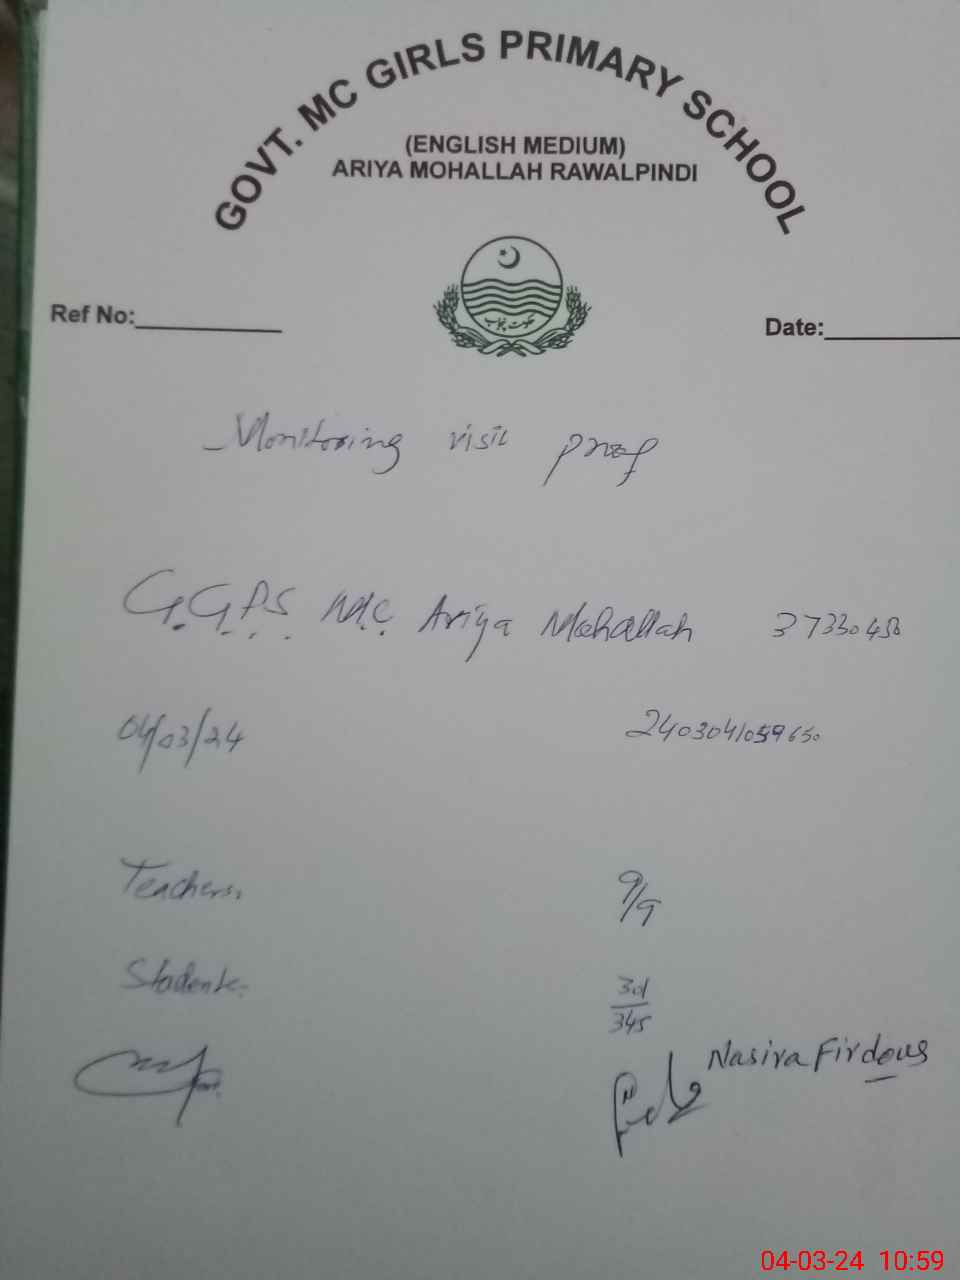 GOVT. MC GIRLS PRIMARY SCHOOL
(ENGLISH MEDIUM)
ARIYA MOHALLAH RAWALPINDI
حکومت پنجاب
Ref No:
Date:
Monitoring visit proof
G.G.P.S M.C. Ariya Mohallah 37330450
04/03/24 2403041059650
Teachers. 9/9
Students. 301/345
Nasira Firdous
04-03-24 10:59